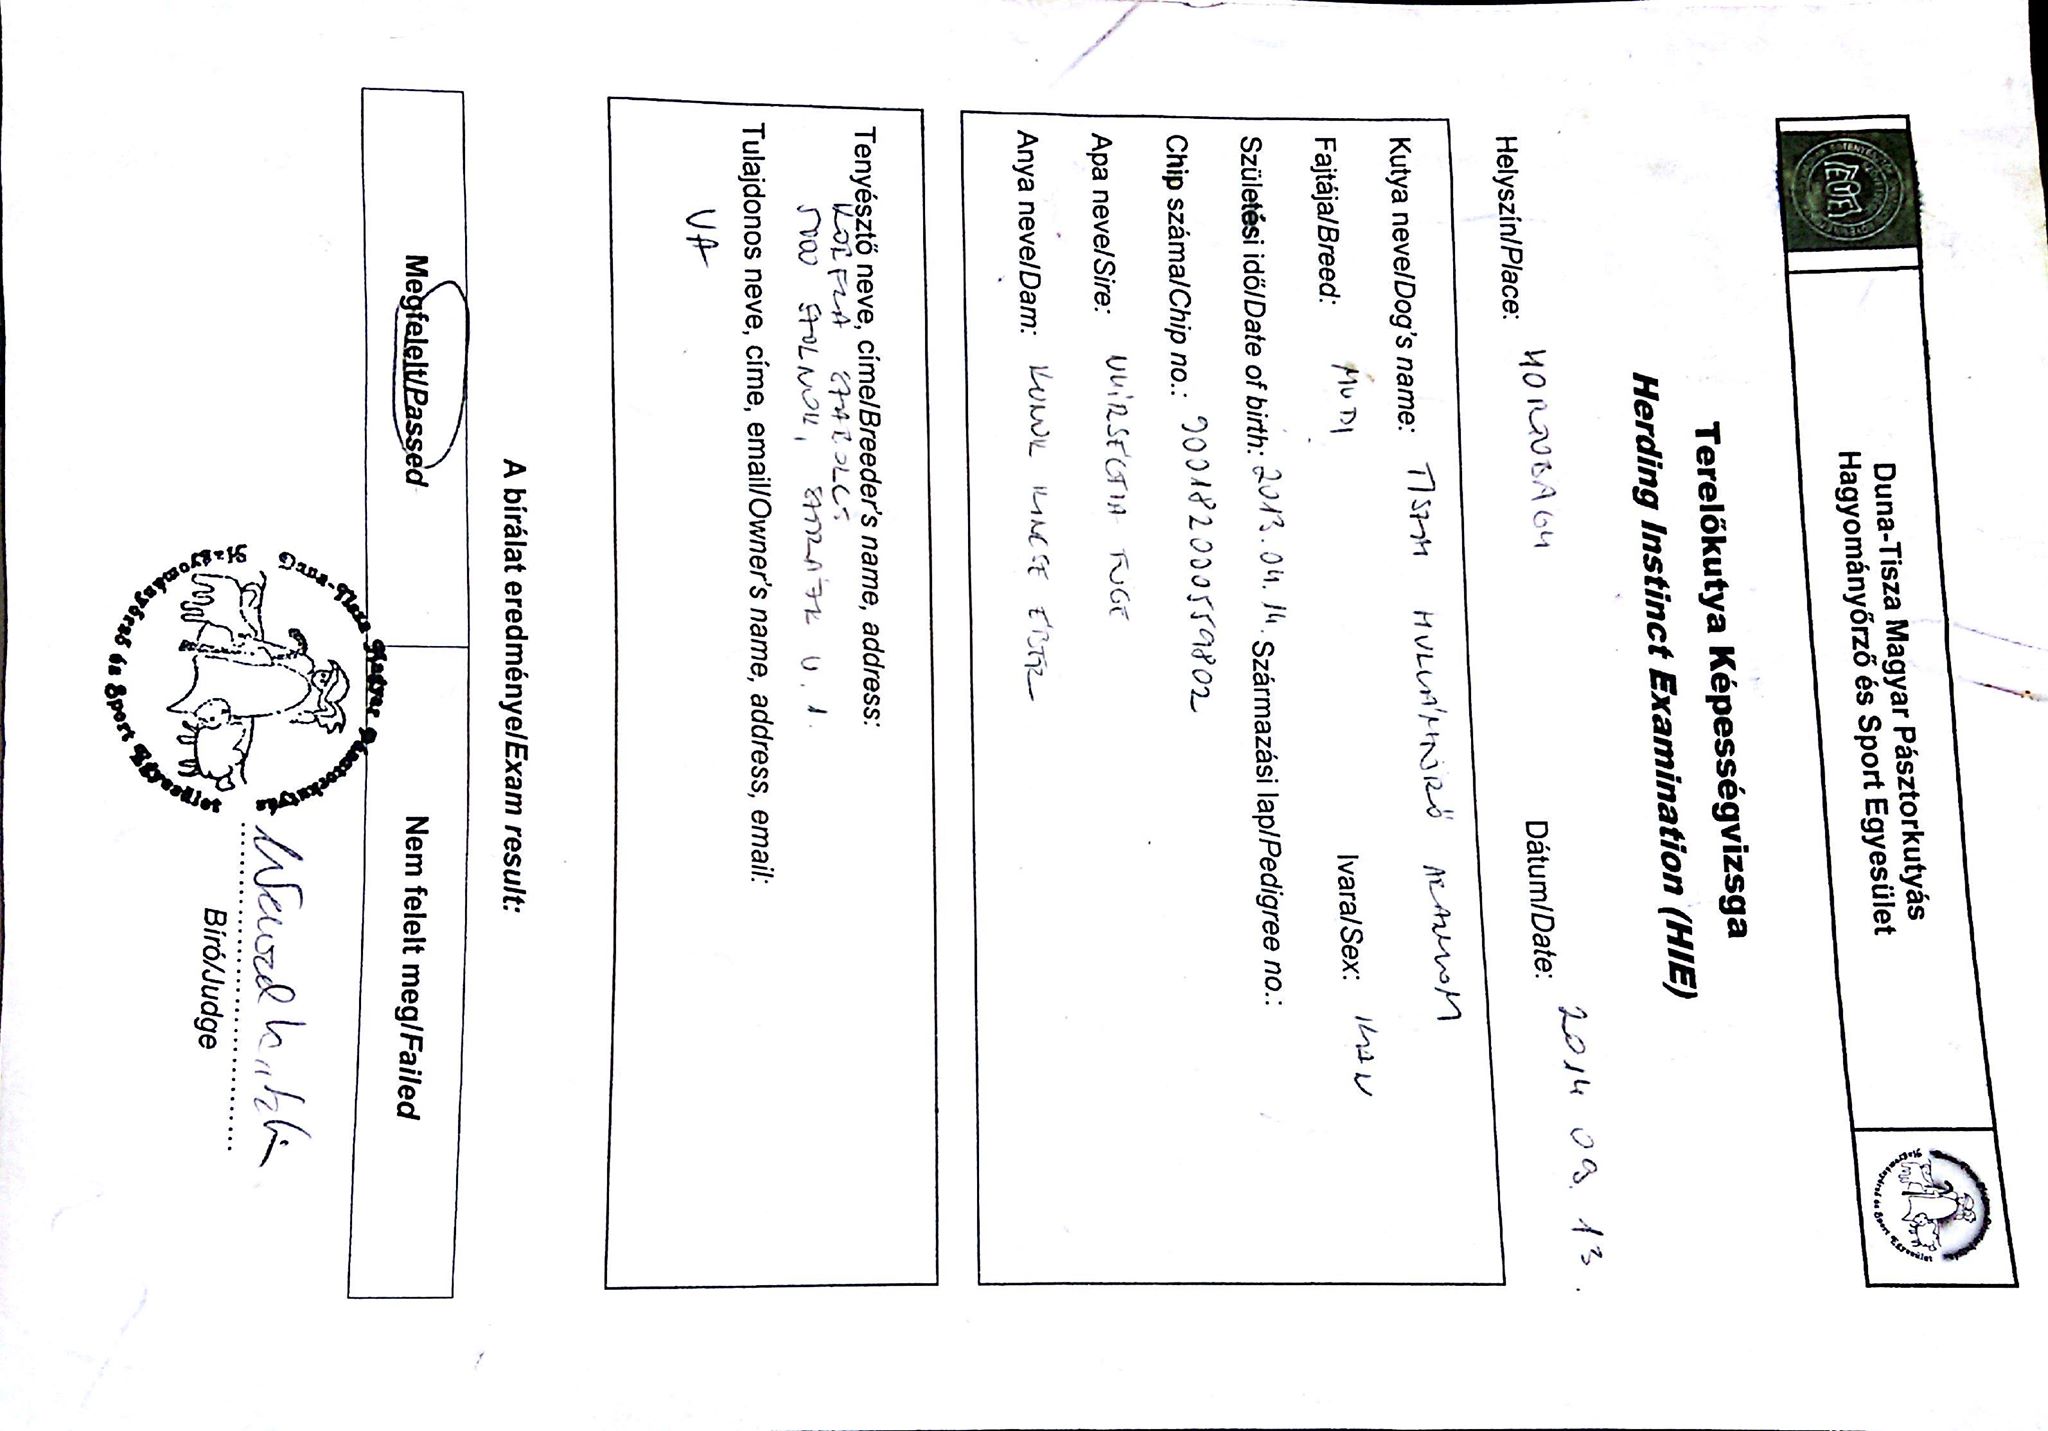 Duna-Tisza Magyar Pásztorkutyás
Hagyományőrző és Sport Egyesület
Terelőkutya Képességvizsga
Herding Instinct Examination (HIE)
Helyszín/Place: HORTOBÁGY Dátum/Date: 2014 09. 13.
Kutya neve/Dog's name: TISZAI HULLÁMTÖRŐ ARANYOM
Fajtája/Breed: MUDI Ivara/Sex: KAN
Születési idő/Date of birth: 2013.04.14. Származási lap/Pedigree no.:
Chip száma/Chip no.: 900182000559802
Apa neve/Sire: FÜGE
Anya neve/Dam: KINCSE
Tenyésztő neve, címe/Breeder's name, address:
SZABOLCS
5000 SZOLNOK, U. 1.
Tulajdonos neve, címe, email/Owner's name, address, email:
UA
A bírálat eredménye/Exam result:
Megfelelt/Passed Nem felelt meg/Failed
Duna-Tisza Magyar Pásztorkutyás
Hagyományőrző és Sport Egyesület
Bíró/Judge